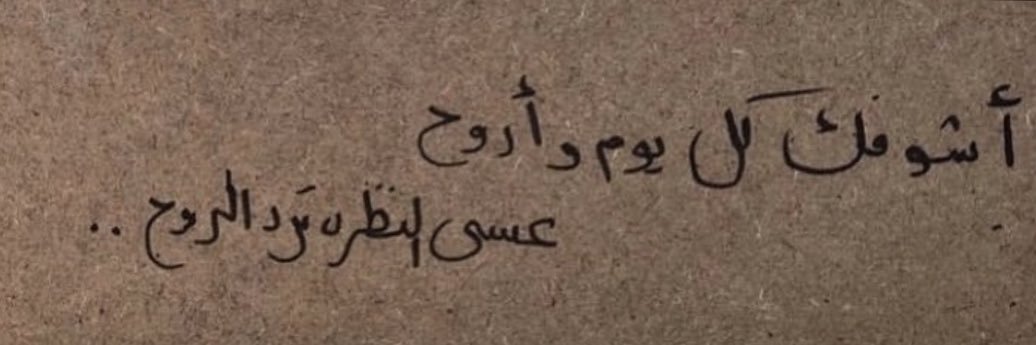 أشوفك كل يوم وأروح
عسى النظره ترد الروح ..